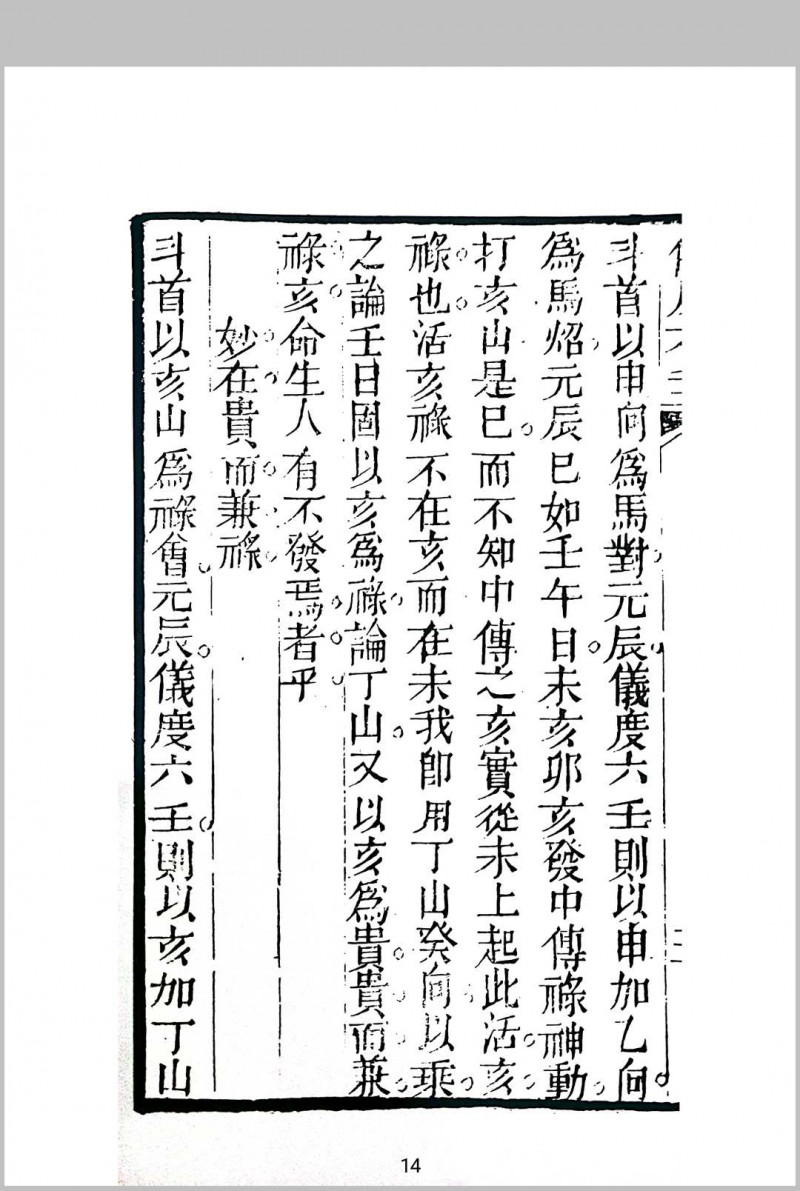 斗首以申向爲馬對元辰儀度六壬則以申加乙向
爲馬炤元辰巳如壬午日未亥卯亥發中傳祿神動
打亥山是巳而不知中傳之亥實從未上起此活亥
祿也活亥祿不在亥而在未我卽用丁山癸向以乘
之論壬日固以亥爲祿論丁山又以亥爲貴貴而兼
祿亥命生人有不發焉者乎
妙在貴而兼祿
斗首以亥山爲祿會元辰儀度六壬則以亥加丁山
14